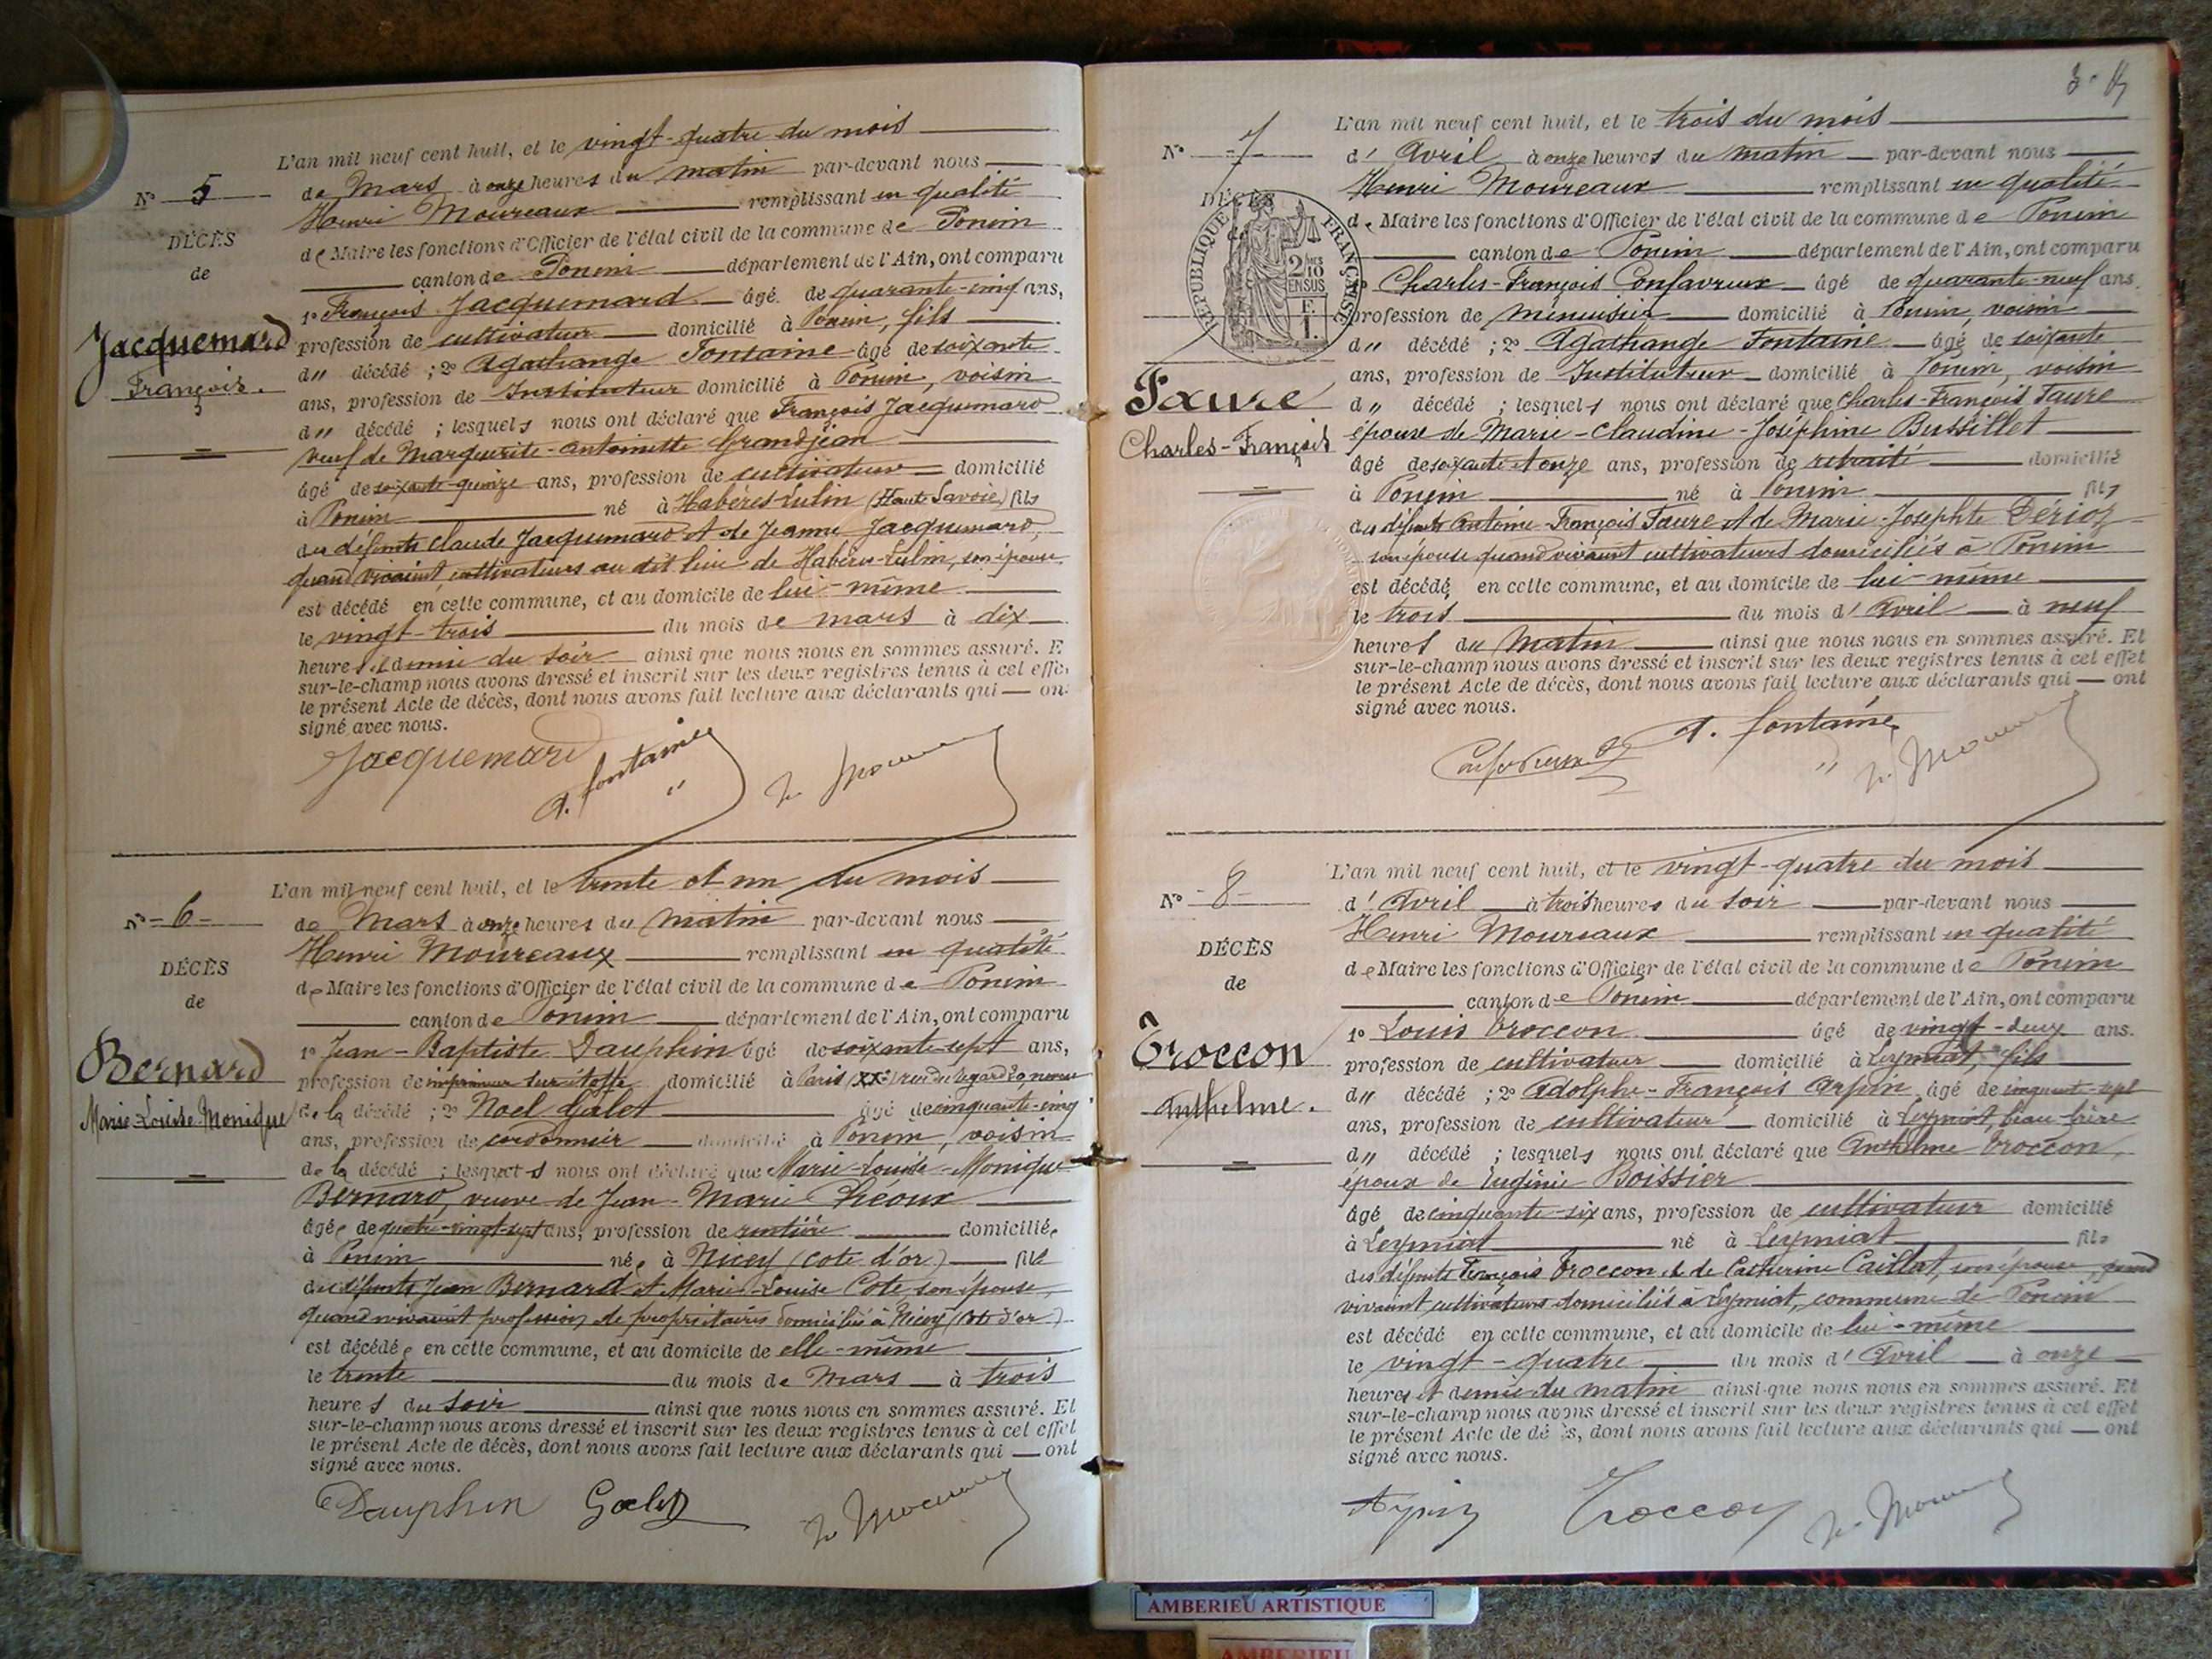 N° 5
DÉCÈS
de
Jacquemard
François.
L'an mil neuf cent huit, et le vingt-quatre du mois
de Mars à onze heures du matin par-devant nous
Henri Moureaux remplissant en qualité
de Maire les fonctions d'Officier de l'état civil de la commune de Poncin
canton de Poncin département de l'Ain, ont comparu
1° François Jacquemard âgé de quarante-cinq ans,
profession de cultivateur domicilié à Poncin, fils
du décédé ; 2° Agathange Fontaine âgé de soixante
ans, profession de Instituteur domicilié à Poncin, voisin
du décédé ; lesquels nous ont déclaré que François Jacquemard
veuf de Marguerite-Antoinette Grandjean
âgé de soixante-quinze ans, profession de cultivateur domicilié
à Poncin né à Habères-Lulin (Haute Savoie) fils
des défunts Claude Jacquemard et de Jeanne Jacquemard,
quand vivaient cultivateurs au dit lieu de Habères-Lulin, son épouse
est décédé en cette commune, et au domicile de lui-même
le vingt-trois du mois de mars à dix
heures et demie du soir ainsi que nous nous en sommes assuré. E
sur-le-champ nous avons dressé et inscrit sur les deux registres tenus à cet effe
le présent Acte de décès, dont nous avons fait lecture aux déclarants qui — on
signé avec nous.
Jacquemard
A. Fontaine
H. Moureaux
N° 6
DÉCÈS
de
Bernard
Marie-Louise-Monique
L'an mil neuf cent huit, et le trente et un du mois
de Mars à onze heures du matin par-devant nous
Henri Moureaux remplissant en qualité
de Maire les fonctions d'Officier de l'état civil de la commune de Poncin
canton de Poncin département de l'Ain, ont comparu
1° Jean-Baptiste Dauphin âgé de soixante-sept ans,
profession de imprimeur sur étoffe domicilié à Paris (XXe) neveu
de la décédé ; 2° Noel Galet âgé de cinquante-cinq
ans, profession de cordonnier domicilié à Poncin, voisin
de la décédé ; lesquels nous ont déclaré que Marie-Louise-Monique
Bernard, veuve de Jean-Marie Chéoux
âgée de quatre-vingt-sept ans, profession de rentière domiciliée
à Poncin née à Nicey (Cote d'or) fille
des défunts Jean Bernard et Marie-Louise Cote, son épouse,
quand vivaient profession de propriétaires domiciliés à Nicey (Cote d'or)
est décédée en cette commune, et au domicile de elle-même
le trente du mois de Mars à trois
heures du soir ainsi que nous nous en sommes assuré. Et
sur-le-champ nous avons dressé et inscrit sur les deux registres tenus à cet effet
le présent Acte de décès, dont nous avons fait lecture aux déclarants qui — ont
signé avec nous.
Dauphin Galet
H. Moureaux
N° 7
DÉCÈS
RÉPUBLIQUE FRANÇAISE
2/10 EN SUS
Faure
Charles-François
L'an mil neuf cent huit, et le trois du mois
d'Avril à onze heures du matin par-devant nous
Henri Moureaux remplissant en qualité
de Maire les fonctions d'Officier de l'état civil de la commune de Poncin
canton de Poncin département de l'Ain, ont comparu
Charles-François Confavreux âgé de quarante-neuf ans.
profession de menuisier domicilié à Poncin, voisin
du décédé ; 2° Agathange Fontaine âgé de soixante
ans, profession de Instituteur domicilié à Poncin, voisin
du décédé ; lesquels nous ont déclaré que Charles-François Faure
époux de Marie-Claudine-Joséphine Bussillet
âgé de soixante et onze ans, profession de retraité domicilié
à Poncin né à Poncin fils
des défunts Antoine-François Faure et de Marie-Josephte Dérioz
son épouse quand vivaient cultivateurs domiciliés à Poncin
est décédé en cette commune, et au domicile de lui-même
le trois du mois d'Avril à neuf
heures du Matin ainsi que nous nous en sommes assuré. Et
sur-le-champ nous avons dressé et inscrit sur les deux registres tenus à cet effet
le présent Acte de décès, dont nous avons fait lecture aux déclarants qui — ont
signé avec nous.
A. Fontaine
H. Moureaux
N° 8
DÉCÈS
de
Troccon
Anthelme.
L'an mil neuf cent huit, et le vingt-quatre du mois
d'Avril à trois heures du soir par-devant nous
Henri Moureaux remplissant en qualité
de Maire les fonctions d'Officier de l'état civil de la commune de Poncin
canton de Poncin département de l'Ain, ont comparu
1° Louis Troccon âgé de vingt-deux ans.
profession de cultivateur domicilié à Leymiat, fils
du décédé ; 2° Adolphe-François Arpin âgé de cinquante-sept
ans, profession de cultivateur domicilié à Leymiat, beau-frère
du décédé ; lesquels nous ont déclaré que Anthelme Troccon,
époux de Eugénie Boissier
âgé de cinquante-six ans, profession de cultivateur domicilié
à Leymiat né à Leymiat fils
des défunts François Troccon et de Catherine Caillat, son épouse, quand
vivaient cultivateurs domiciliés à Leymiat, commune de Poncin
est décédé en cette commune, et au domicile de lui-même
le vingt-quatre du mois d'Avril à onze
heures et demie du matin ainsi que nous nous en sommes assuré. Et
sur-le-champ nous avons dressé et inscrit sur les deux registres tenus à cet effet
le présent Acte de décès, dont nous avons fait lecture aux déclarants qui — ont
signé avec nous.
Arpin Troccon H. Moureaux
AMBERIEU ARTISTIQUE
AMBERIEU